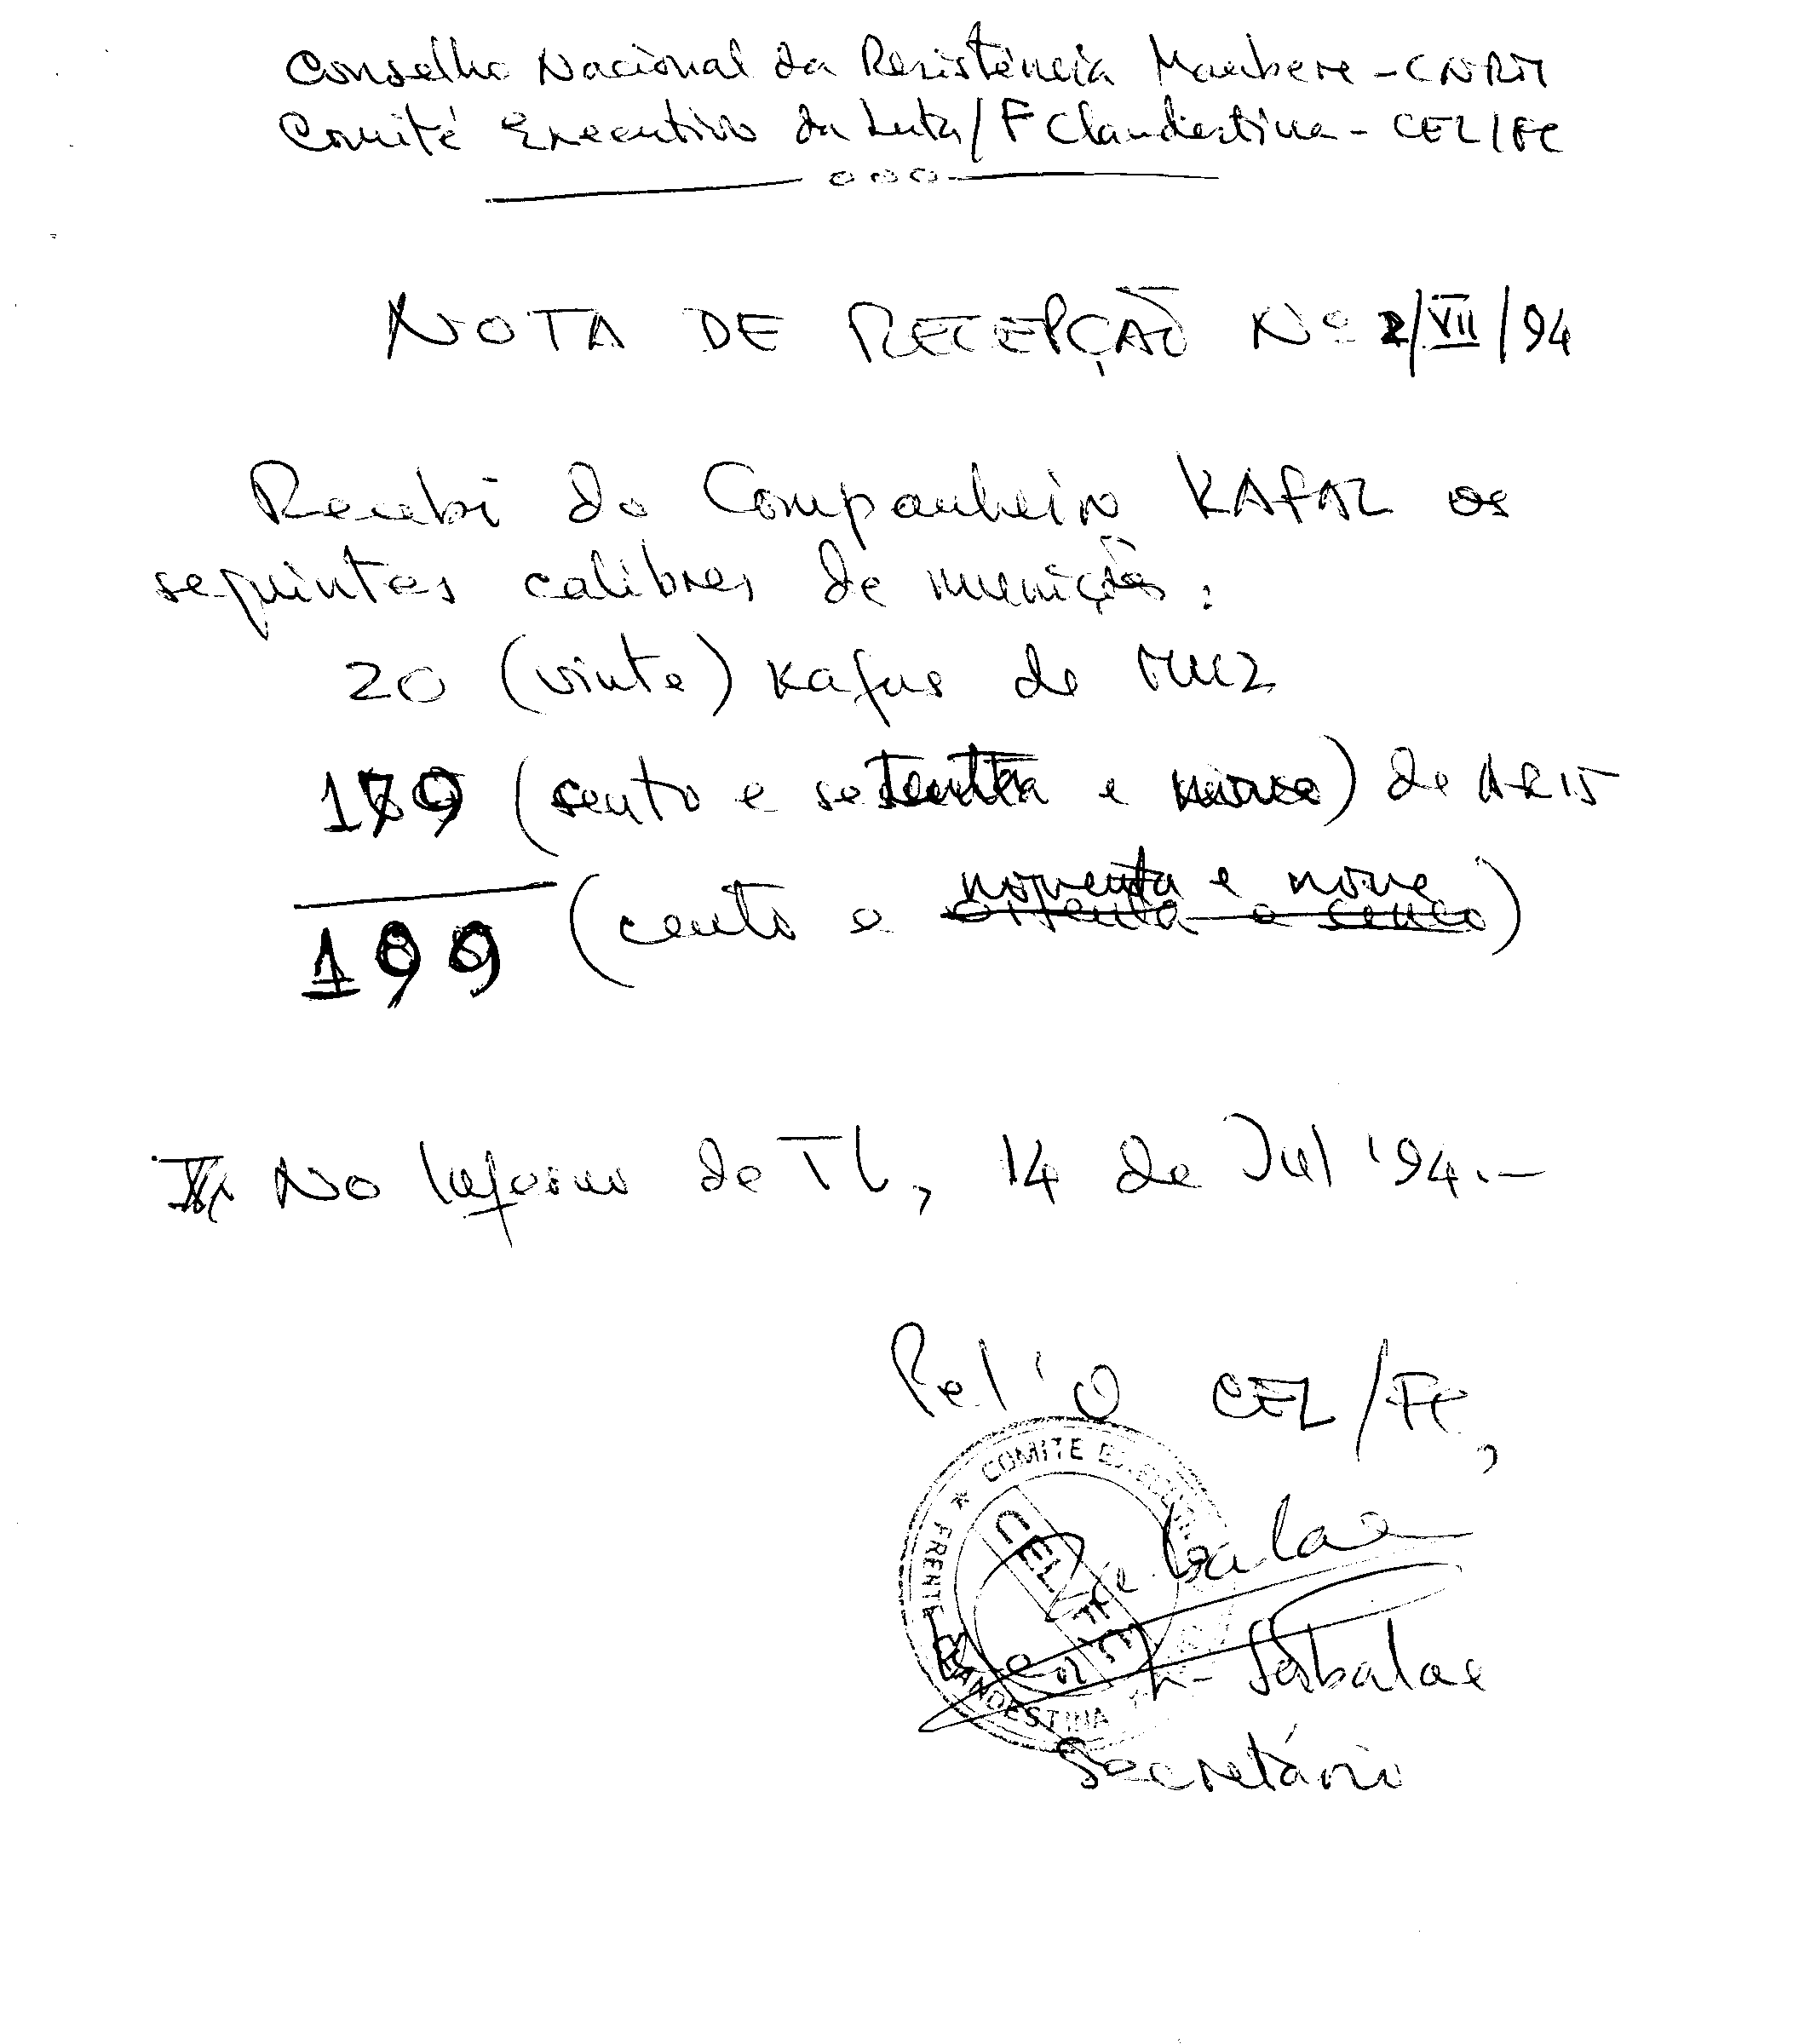 Conselho Nacional da Resistência Maubere - CNRM
Comité Executivo da Luta/F Clandestina - CEL/FC
NOTA DE RECEPÇÃO Nº 2/VII/94
Recebi do Companheiro KAFAL os
seguintes calibres de munição:
20 (vinte) kafus de
179 (cento e setenta e nove) de AR15
199 (cento e noventa e nove)
oitenta e cenco
No Inferno de TL, 14 de Jul '94.-
Pel'O CEL/FC,
COMITE EXECUTIVO
CEL FC
FRENTE CLANDESTINA
Sabalae
Secretário